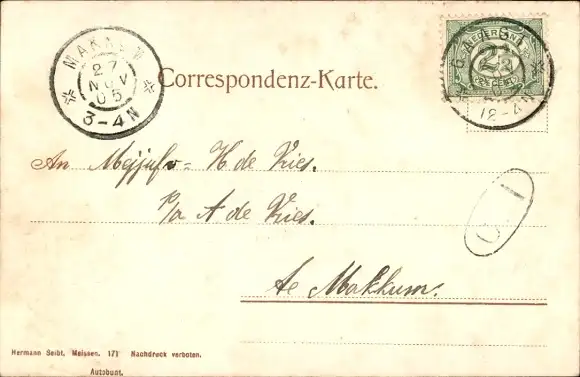 MAKKUM
27
NOV
05
3-4N
Correspondenz-Karte.
NEDERLAND
2½
CENT
12-4N
An Mejjufv= H de Vries.
P/a A de Vries.
te Makkum.
Hermann Seibt, Meissen. 171 Nachdruck verboten.
Autobunt.